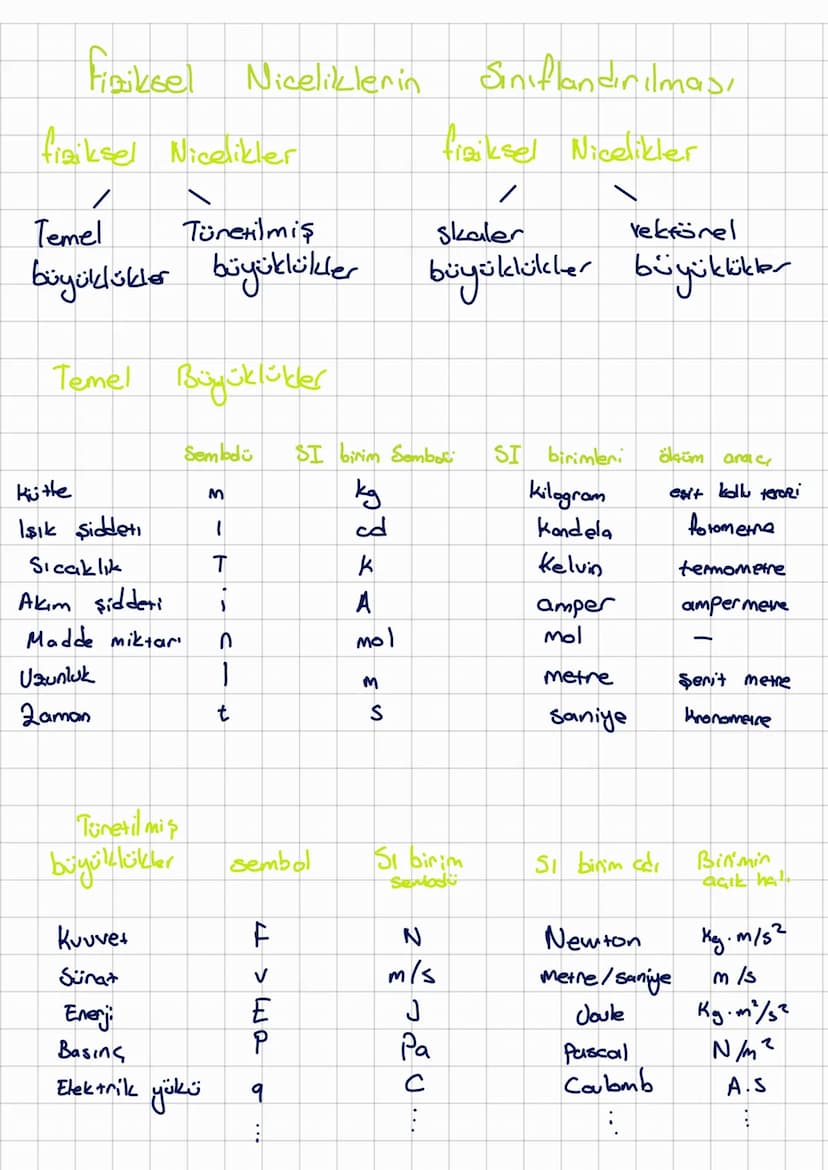 Fiziksel Niceliklerin Sınıflandırılması
fiziksel Nicelikler fiziksel Nicelikler
Temel büyüklükler Türetilmiş büyüklükler skaler büyüklükler vektörel büyüklükler
Temel Büyüklükler
Sembolü SI birim Sembolü SI birimleri ölçüm aracı
Kütle m kg kilogram eşit kollu terazi
Işık şiddeti I cd kandela fotometre
Sıcaklık T K Kelvin termometre
Akım şiddeti i A amper ampermetre
Madde miktarı n mol mol —
Uzunluk l m metre Şerit metre
Zaman t s saniye kronometre
Türetilmiş büyüklükler sembol SI birim sembolü SI birim adı Birimin açık hali
Kuvvet F N Newton Kg·m/s²
Sürat v m/s metre/saniye m/s
Enerji E J Joule Kg·m²/s²
Basınç P Pa Pascal N/m²
Elektrik yükü q C Coulomb A.S
⋮ ⋮ ⋮ ⋮